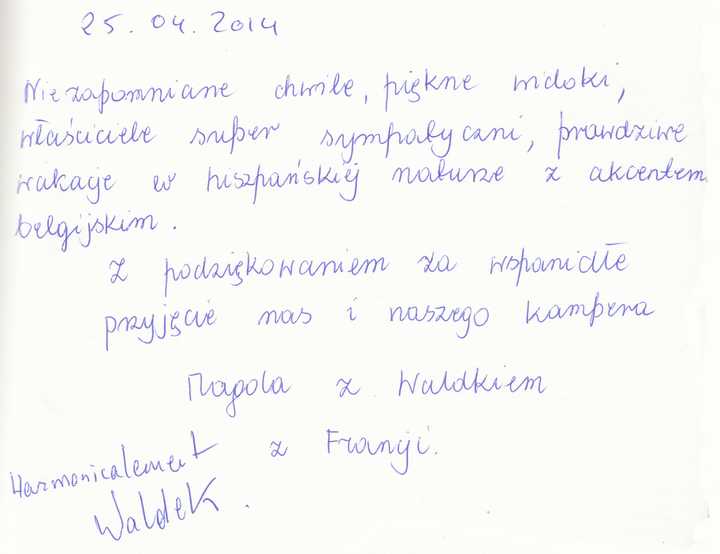 25.04.2014
Niezapomniane chwile, piękne widoki,
właściciele super sympatyczni, prawdziwe
wakacje w hiszpańskiej naturze z akcentem
belgijskim.
Z podziękowaniem za wspaniałe
przyjęcie nas i naszego kampera
Magola z Waldkiem
z Francji.
Harmonicalement
Waldek.